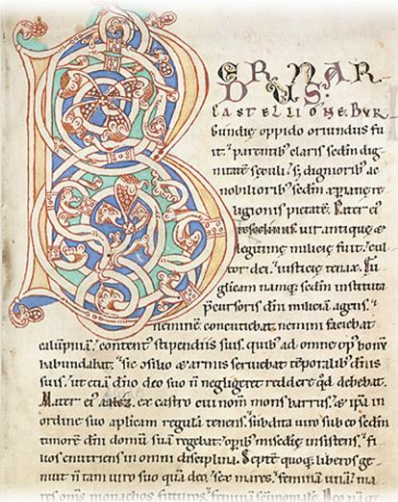 BERNAR
DUS
CASTELLIONE BUR
gundię oppido oriundus fu
it. parentib' claris sedm dig
nitatē seculi. s; dignioribʼ ac
nobilioribʼ sedm xp̄ianę re
ligionis pietatē. Pater eiʼ
tescelinus. uir antiquę &
legitimę milicię fuit. cul
tor dei. iusticię tenax. Eū
gl̄icam namq; sedm instituta
p̄cursoris dn̄i miliciā agens.
neminē concutiebat. nemini faciebat
calūpniā. contentʼ stipendiis suis. quibʼ ad omne opʼ bonū
habundabat. sic & armis seruiebat tēporalibʼ dn̄is
suis. ut etiā dn̄o deo suo n̄ negligeret reddere qd debebat.
Mater eiʼ ex castro cui nom̄ mons barrus. & ip̄a in
ordine suo ap̄licam regulā tenens. subdita uiro sub eo sedm
timorē dei domū suā regebat. opibʼ insistens. fi
lios enutriens in omni disciplina. Septē quoq; liberos ge
nuit n̄ tam uiro suo quā deo. sex mares. feminā unā. ma
res om̄s monachos futuros. feminā